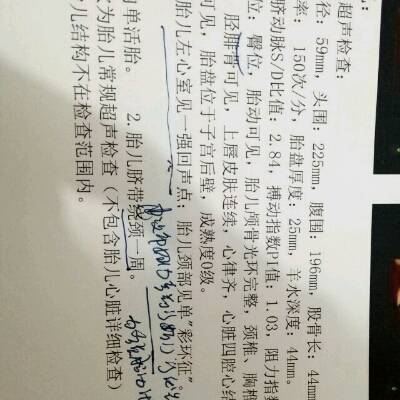 超声检查:
径: 59mm, 头围: 225mm, 腹围: 196mm, 股骨长: 44mm
率: 150次/分, 胎盘厚度: 25mm, 羊水深度: 44mm。
脐动脉S/D比值: 2.84, 搏动指数PI值: 1.03, 阻力指数
位: 臀位, 胎动可见, 胎儿颅骨光环完整, 颈椎、胸椎
胫腓骨可见, 上唇皮肤连续, 心律齐, 心脏四腔心结
可见, 胎盘位于子宫后壁, 成熟度0级。
胎儿左心室见一强回声点, 胎儿颈部见单"彩环征"
内单活胎。 2. 胎儿脐带绕颈一周。
为胎儿常规超声检查 (不包含胎儿心脏详细检查)
儿结构不在检查范围内。